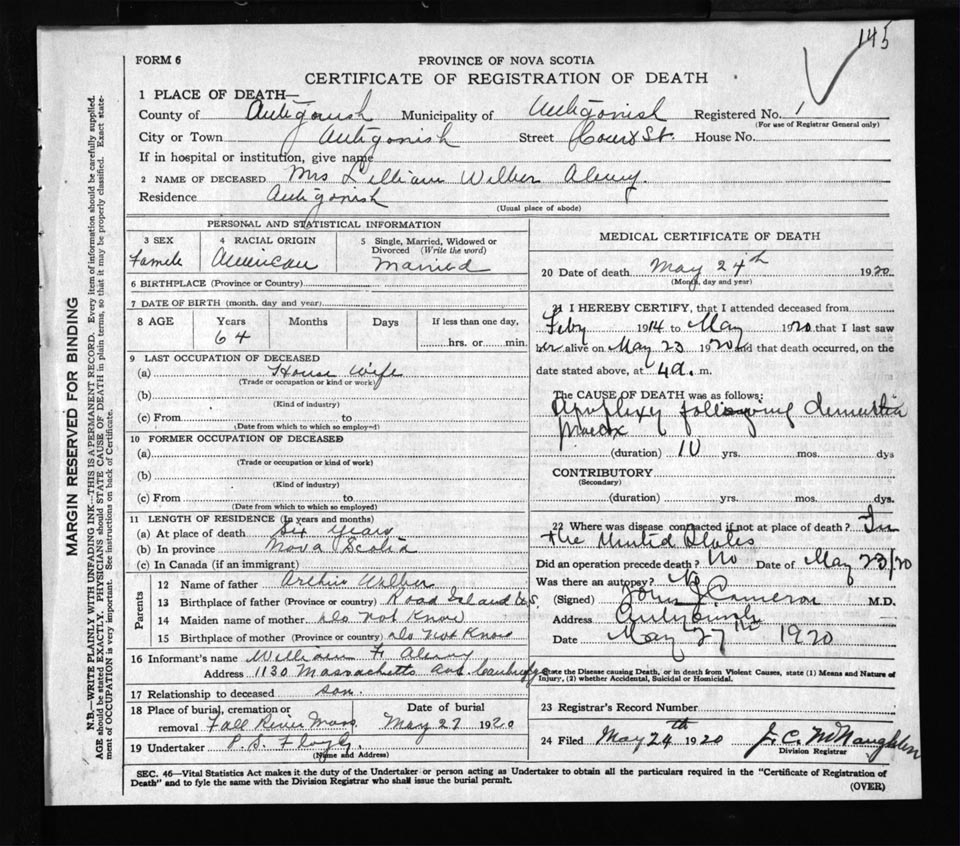 145
FORM 6
PROVINCE OF NOVA SCOTIA
CERTIFICATE OF REGISTRATION OF DEATH
1 PLACE OF DEATH—
County of Antigonish Municipality of Antigonish Registered No. 1
(For use of Registrar General only)
City or Town Antigonish Street Court St. House No.
If in hospital or institution, give name
2 NAME OF DECEASED Mrs Lillian Wilber Almy.
Residence Antigonish
(Usual place of abode)
PERSONAL AND STATISTICAL INFORMATION
3 SEX 4 RACIAL ORIGIN 5 Single, Married, Widowed or Divorced (Write the word)
Famele American Married
6 BIRTHPLACE (Province or Country)
7 DATE OF BIRTH (month, day and year)
8 AGE Years Months Days If less than one day,
64 hrs. or min.
9 LAST OCCUPATION OF DECEASED
(a) House Wife
(Trade or occupation or kind or work)
(b)
(Kind of industry)
(c) From to
(Date from which to which so employed)
10 FORMER OCCUPATION OF DECEASED
(a)
(Trade or occupation or kind of work)
(b)
(Kind of industry)
(c) From to
(Date from which to which so employed)
11 LENGTH OF RESIDENCE (In years and months)
(a) At place of death Six years
(b) In province Nova Scotia
(c) In Canada (if an immigrant)
Parents
12 Name of father Arthur Wilber
13 Birthplace of father (Province or country) Road Island U.S.
14 Maiden name of mother. do not Know
15 Birthplace of mother (Province or country) do not Know
16 Informant's name William F Almy
Address 1130 Massachetts Ave.
17 Relationship to deceased son.
18 Place of burial, cremation or removal Fall River Mass
Date of burial May 27 1920
19 Undertaker P. S. Floyd
(Name and Address)
MEDICAL CERTIFICATE OF DEATH
20 Date of death May 24th 1920
(Month, day and year)
21 I HEREBY CERTIFY, that I attended deceased from
Feby 1914 to May 1920 that I last saw
her alive on May 23 1920 and that death occurred, on the
date stated above, at 4 a. m.
The CAUSE OF DEATH was as follows:
Apoplexy following dementia
praecox
(duration) 10 yrs. mos. dys
CONTRIBUTORY
(Secondary)
(duration) yrs. mos. dys.
22 Where was disease contracted if not at place of death? In
the United States
Did an operation precede death? No Date of May 23/20
Was there an autopsy? No
(Signed) John J Cameron M.D.
Address Antigonish
Date May 27th 1920
State the Disease causing Death, or in death from Violent Causes, state (1) Means and Nature of
Injury, (2) whether Accidental, Suicidal or Homicidal.
23 Registrar's Record Number
24 Filed May 24th 1920 J. C. McNaughton
Division Registrar
SEC. 46—Vital Statistics Act makes it the duty of the Undertaker or person acting as Undertaker to obtain all the particulars required in the "Certificate of Registration of
Death" and to fyle the same with the Division Registrar who shall issue the burial permit.
(OVER)
MARGIN RESERVED FOR BINDING
N.B.—WRITE PLAINLY WITH UNFADING INK—THIS IS A PERMANENT RECORD. Every item of information should be carefully supplied.
AGE should be stated EXACTLY. PHYSICIANS should STATE CAUSE OF DEATH in plain terms, so that it may be properly classified. Exact state-
ment of OCCUPATION is very important. See instructions on back of Certificate.